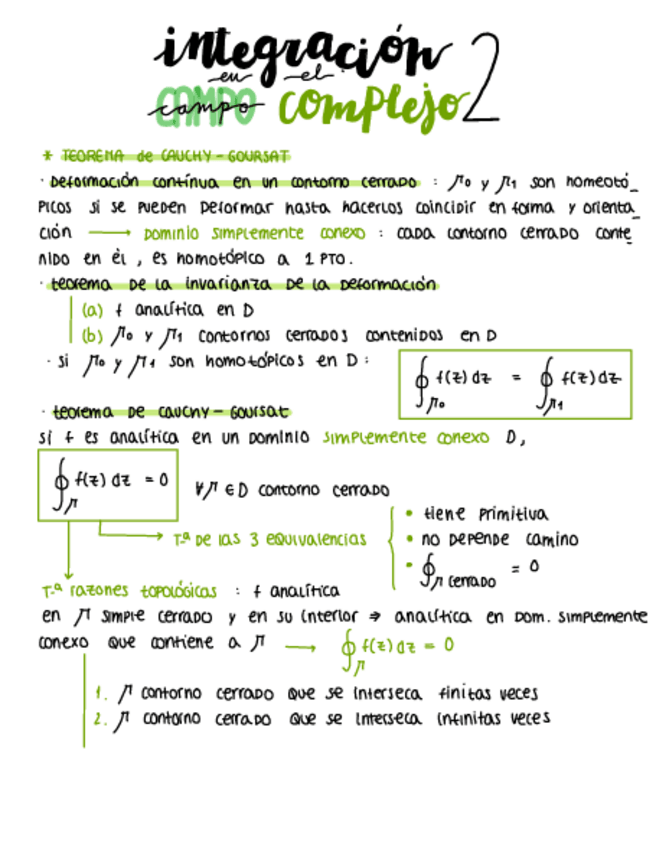 integración
en el
campo complejo 2
* TEOREMA de CAUCHY-GOURSAT
· Deformación contínua en un contorno cerrado : Γ0 y Γ1 son homeotó_
picos si se pueden deformar hasta hacerlos coincidir en forma y orienta_
ción → dominio simplemente conexo : cada contorno cerrado conte_
nido en él, es homotópico a 1 pto.
· teorema de la invarianza de la deformación
(a) f analítica en D
(b) Γ0 y Γ1 contornos cerrados contenidos en D
· si Γ0 y Γ1 son homotópicos en D : ∮Γ0 f(z) dz = ∮Γ1 f(z) dz
· teorema de cauchy-goursat
si f es analítica en un dominio simplemente conexo D,
∮Γ f(z) dz = 0 ∀Γ ∈ D contorno cerrado
• tiene primitiva
T.ª de las 3 equivalencias • no depende camino
• ∮Γ cerrado = 0
T.ª razones topológicas : f analítica
en Γ simple cerrado y en su interior ⇒ analítica en dom. simplemente
conexo que contiene a Γ → ∮Γ f(z) dz = 0
1. Γ contorno cerrado que se interseca finitas veces
2. Γ contorno cerrado que se interseca infinitas veces